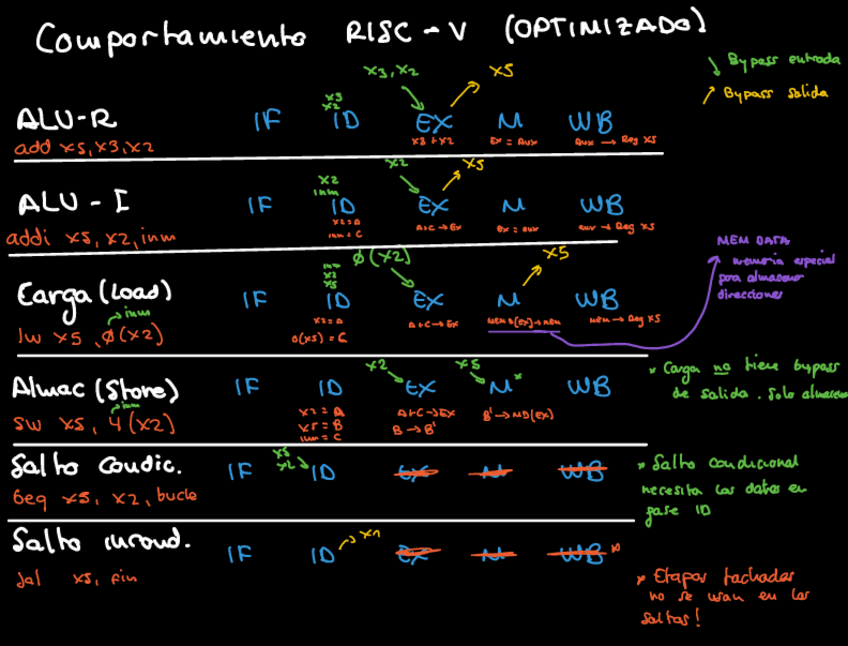 Comportamiento RISC-V (OPTIMIZADO)
Bypass entrada
Bypass salida
x3, x2 x5
x3
x2
ALU-R IF ID EX M WB
add x5, x3, x2 x3+x2 Ex = Aux Aux → Reg x5
x2 x5
x2
inm
ALU-I IF ID EX M WB
addi x5, x2, inm x2=A A+C→Ex Ex = aux aux → Reg x5
inm = C
MEM DATA
memoria especial
para almacenar
direcciones
Ø(x2) x5
inm
x2
x5
Carga (Load) IF ID EX M WB
inm
lw x5, Ø(x2) x2=A A+C→Ex MEM D[Ex]→MEM Mem → Reg x5
0(x5) = C
* Carga no tiene bypass
de salida. Solo almacena
x2 x5
Almac (Store) IF ID EX M* WB
inm
sw x5, 4(x2) x2 = A A+C→EX B'→MD(EX)
x5 = B B→B'
inm = C
x5
x2
Salto condic. IF ID EX M WB
beq x5, x2, bucle
* Salto condicional
necesita los datos en
fase ID
x1
Salto incond. IF ID EX M WB*
jal x5, fin
* Etapas tachadas
no se usan en los
saltos!